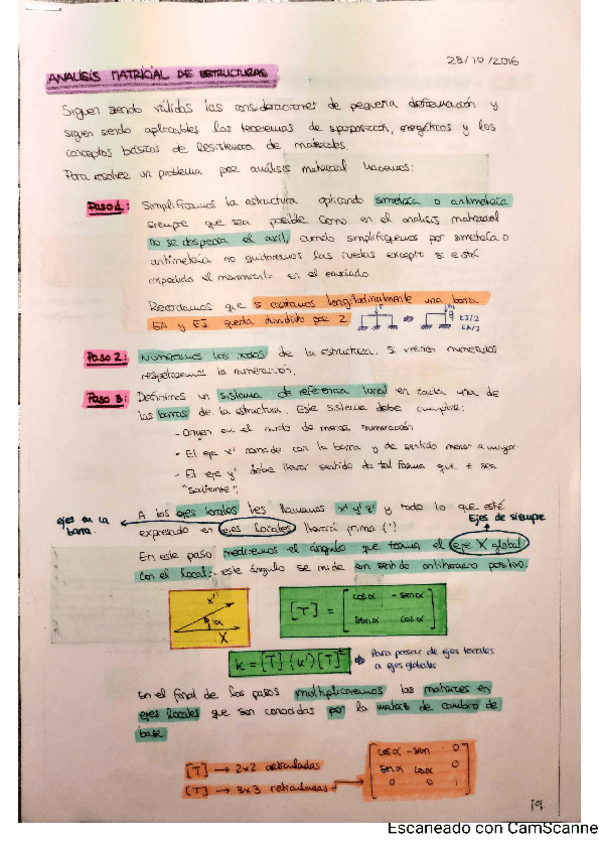 28/10/2016
ANALISIS MATRICIAL DE ESTRUCTURAS
Siguen siendo válidas las consideraciones de pequeña deformación y
siguen siendo aplicables los teoremas de superposición, energéticos y los
conceptos básicos de Resistencia de materiales.
Para resolver un problema por análisis matricial hacemos:
Paso 1: Simplificamos la estructura aplicando simetría o antimetría
siempre que sea posible. Como en el análisis matricial
no se desprecia el axil, cuando simplifiquemos por simetría o
antimetría no quitaremos las ruedas excepto si está
impedido el movimiento en el enunciado
Recordamos que si cortamos longitudinalmente una barra
EA y EI queda dividido por 2
EI/2
EA/2
Paso 2: Numeramos los nodos de la estructura. Si vienen numerados
respetaremos la numeración.
Paso 3: Definimos un sistema de referencia local en cada una de
las barras de la estructura. Este sistema debe cumplir:
- Origen en el nudo de menor numeración
- El eje x' coincide con la barra y de sentido menor a mayor
- El eje y' debe llevar sentido de tal forma que z sea
"saliente".
A los ejes locales les llamamos x' y' z' y todo lo que esté
ejes en la
barra.
expresado en ejes locales llevará prima (')
Ejes de siempre
En este paso mediremos el ángulo que forma el eje X global
con el local. este ángulo se mide en sentido antihorario positivo.
x'
α
X
[T] = [cosα -senα
senα cosα]
K = [T] (k') [T]ᵗ
Para pasar de ejes locales
a ejes globales
En el final de los pasos multiplicaremos las matrices en
ejes locales que son conocidas por la matriz de cambio de
base
[T] → 2x2 articuladas
[T] → 3x3 reticuladas →
cosα -sen 0
senα cosα 0
0 0 1
19
Escaneado con CamScanner